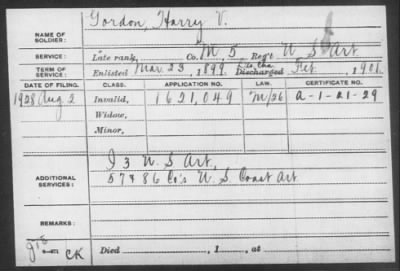 Gordon, Harry V.
NAME OF SOLDIER:
SERVICE: Late rank, Co. M 5 Reg't U S Art
TERM OF SERVICE: Enlisted Mar. 23, 1899 Discharged Feb , 1901
DATE OF FILING. CLASS. APPLICATION NO. LAW. CERTIFICATE NO.
1928 Aug 2 Invalid, 1621,049 M/26 A-1-21-29
Widow,
Minor,
I 3 U S Art,
ADDITIONAL SERVICES: 57 & 86 Co's U S Coast Art
REMARKS:
CK Died , 1 , at